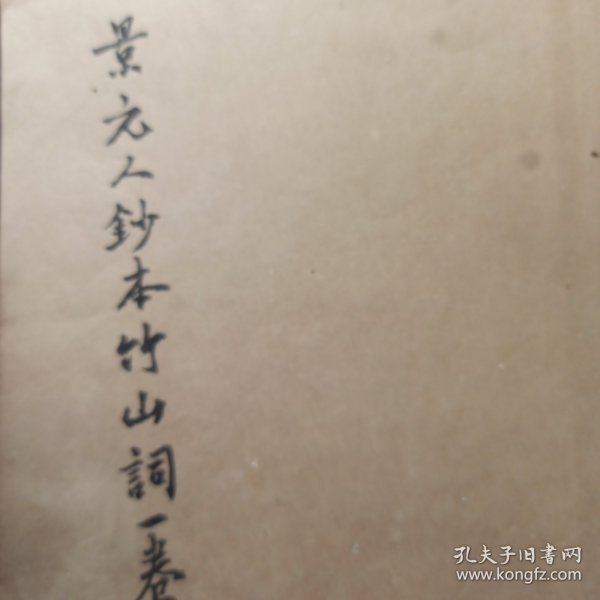 景元人鈔本竹山詞一卷
孔夫子旧书网
www.kongfz.com